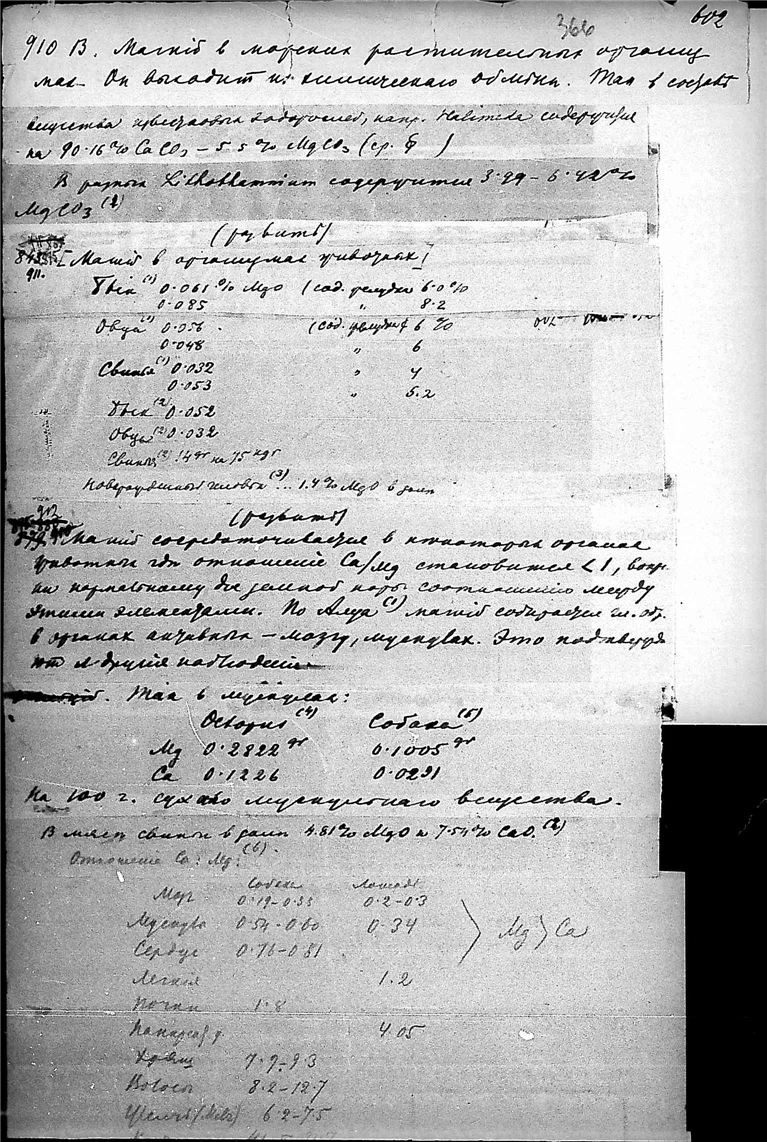 366
602
910 В. Магній в морских растительных организ
мах. Он выходит из химическаго обмена. Так в составе
вещества известковых водорослей, напр. Halimeda содержащие
на 90.16% CaCO3 – 5.5% MgCO3 (ср. § )
В разных Lithothamnium содержится 3.99 – 6.42%
MgCO3 (1)
(развить)
911. Магній в организмах животных
Бык (1) 0.061% MgO (сод. желудка 6.0%
0.085 " 8.2
Овца (1) 0.056 (сод. желудка 6%
0.048 " 6
Свинья (1) 0.032 " 4
0.053 " 5.2
Бык (2) 0.052
Овца (2) 0.032
Свинья (2) 14 gr на 75 kgr
Новорожденный человек (3) .. 1.4% MgO в золе
(развить)
912
Магній сосредоточивается в некоторых органах
животных где отношение Ca/Mg становится < 1, вопр.
их нормальному для земной коры соотношению между
этими элементами. По (1) магній собирается гл. обр.
в органах активных – мозгу, мускулах. Это подтвержда
ют и другія наблюдения
Так в мускулах:
(4) Собака (5)
Mg 0.2822 gr 0.1005 gr
Ca 0.1226 0.0291
На 100 г. сухого мускульнаго вещества.
В мясе свиньи в золе 4.81% MgO и 7.54% CaO. (2)
Отношение Ca : Mg: (6)
Собака Лошадь
Мозг 0.19–0.33 0.2–0.3
Мускулы 0.54–0.60 0.34
Mg > Ca
Сердце 0.76–0.81
Легкія 1.2
Почки 1.8
4.05
Хрящ 7.9–9.3
Волосы 8.2–12.7
6.2–7.5